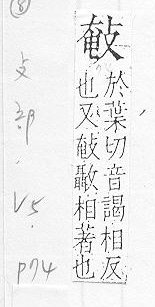 於葉切音謁相反
也又相著也
攴部,V5.
p74